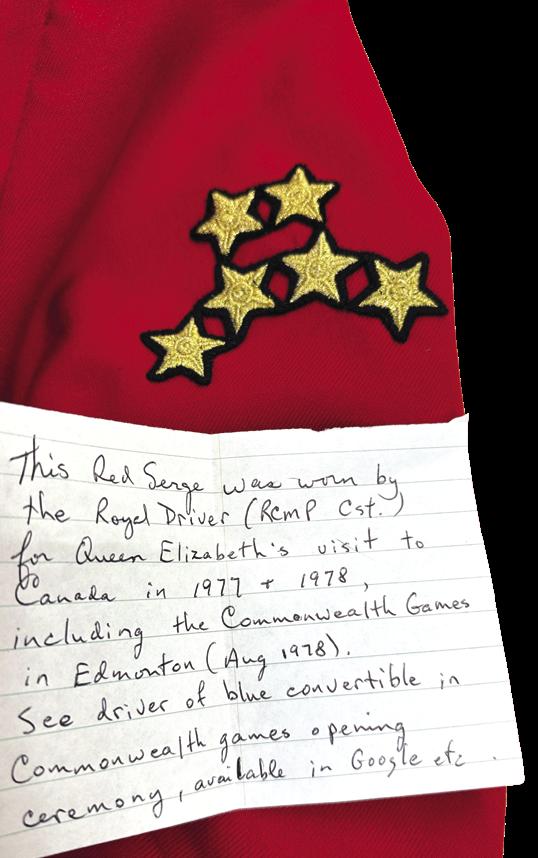 This Red Serge was worn by
the Royal Driver (RCMP Cst.)
for Queen Elizabeth's visit to
Canada in 1977 + 1978,
including the Commonwealth Games
in Edmonton (Aug 1978).
See driver of blue convertible in
Commonwealth games opening
ceremony, available in Google etc.